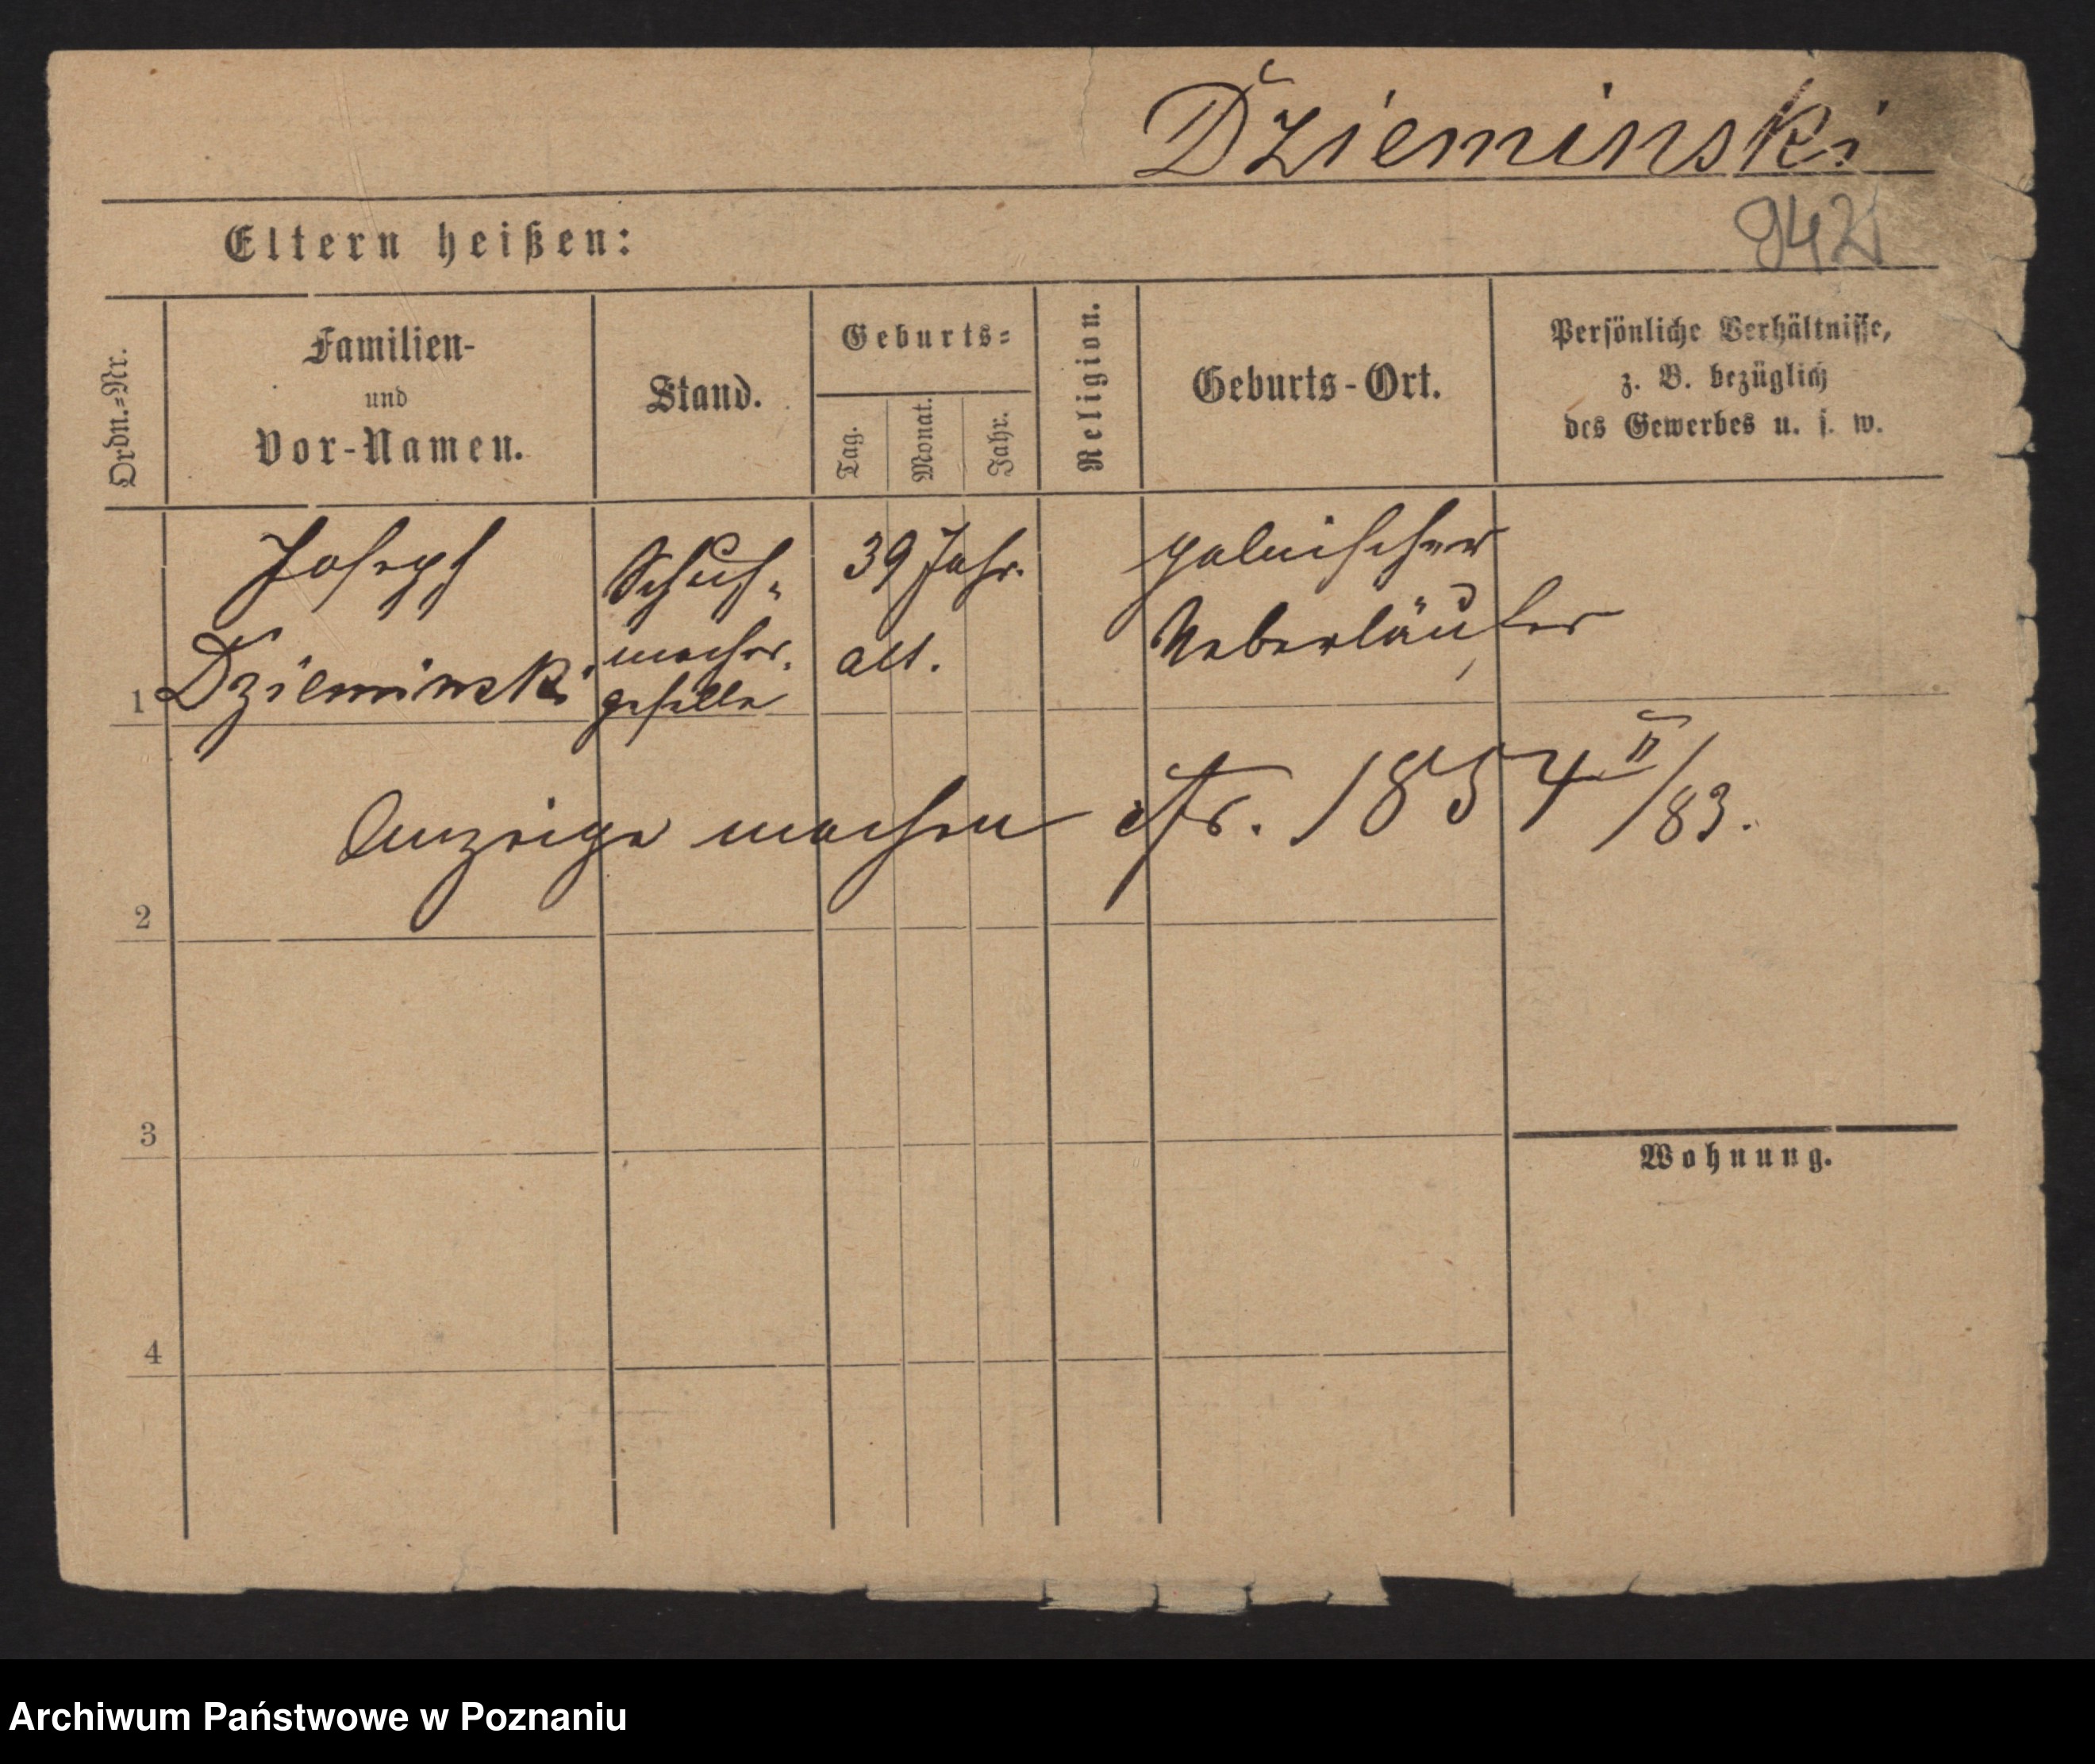 Dzieminski
942
Eltern heißen:
Ordn.=Nr.
Familien-
und
Vor-Namen.
Stand.
Geburts=
Tag.
Monat.
Jahr.
Religion.
Geburts-Ort.
Persönliche Verhältnisse,
z. B. bezüglich
des Gewerbes u. s. w.
1
Joseph
Dzieminski
Schuh-
macher.
geselle
39 Jahr.
alt.
polnischer
Ueberläufer
Anzeige machen cfr. 1854 II/83.
2
3
Wohnung.
4
Archiwum Państwowe w Poznaniu